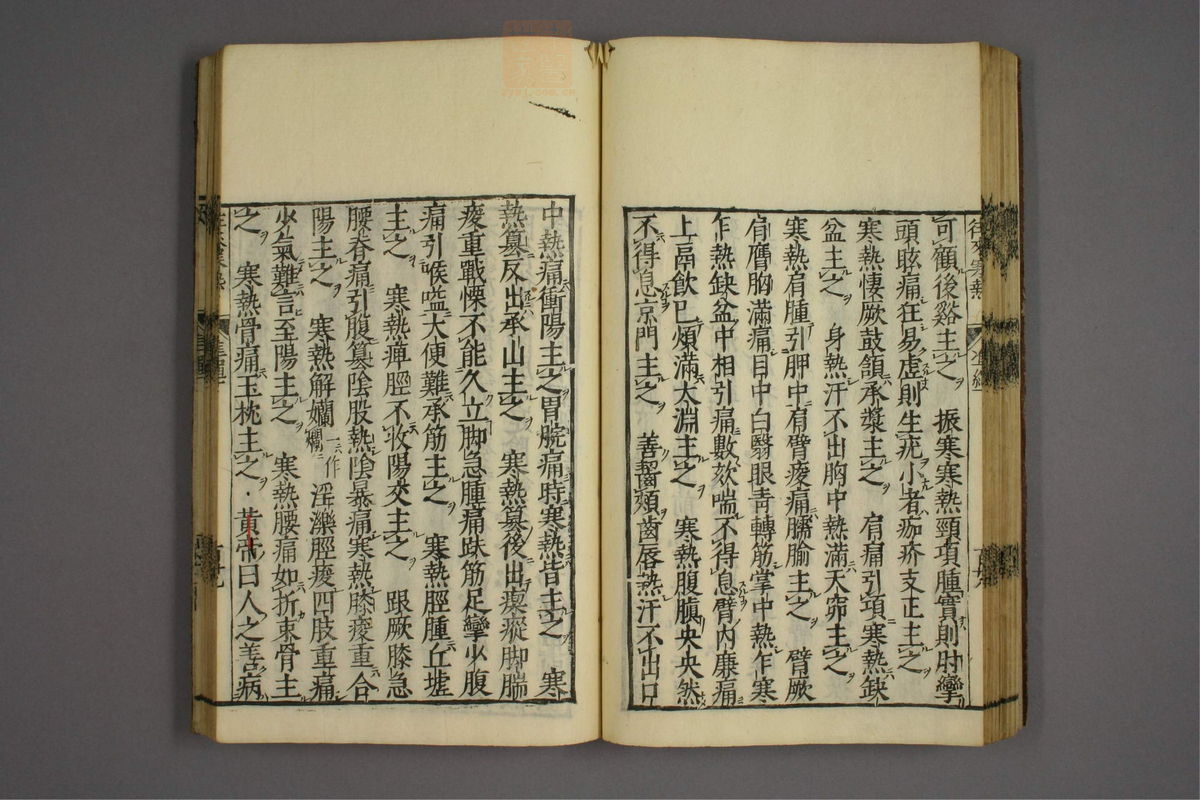 可顧後谿主之 振寒寒熱頸項腫實則肘攣
頭眩痛狂易虛則生疣小者痂疥支正主之
寒熱悽厥鼓頷承漿主之 肩痛引項寒熱缺
盆主之 身熱汗不出胸中熱滿天窌主之
寒熱肩腫引胛中肩臂痠痛臑腧主之 臂厥
肩膺胸滿痛目中白翳眼青轉筋掌中熱乍寒
乍熱缺盆中相引痛數欬喘不得息臂內廉痛
上鬲飲已煩滿太淵主之 寒熱腹䐜央央然
不得息京門主之 善齧頰齒唇熱汗不出口
中熱痛衝陽主之胃脘痛時寒熱皆主之 寒
熱篡反出承山主之 寒熱篡後出瘈瘲脚腨
痠重戰慄不能久立脚急腫痛趺筋足攣少腹
痛引喉嗌大便難承筋主之 寒熱脛腫丘墟
主之 寒熱痺脛不收陽交主之 跟厥膝急
腰脊痛引腹篡陰股熱陰暴痛寒熱膝痠重合
陽主之 寒熱解㿔一作爛淫濼脛痠四肢重痛
少氣難言至陽主之 寒熱腰痛如折束骨主
之 寒熱骨痛玉枕主之 黃帝曰人之善病